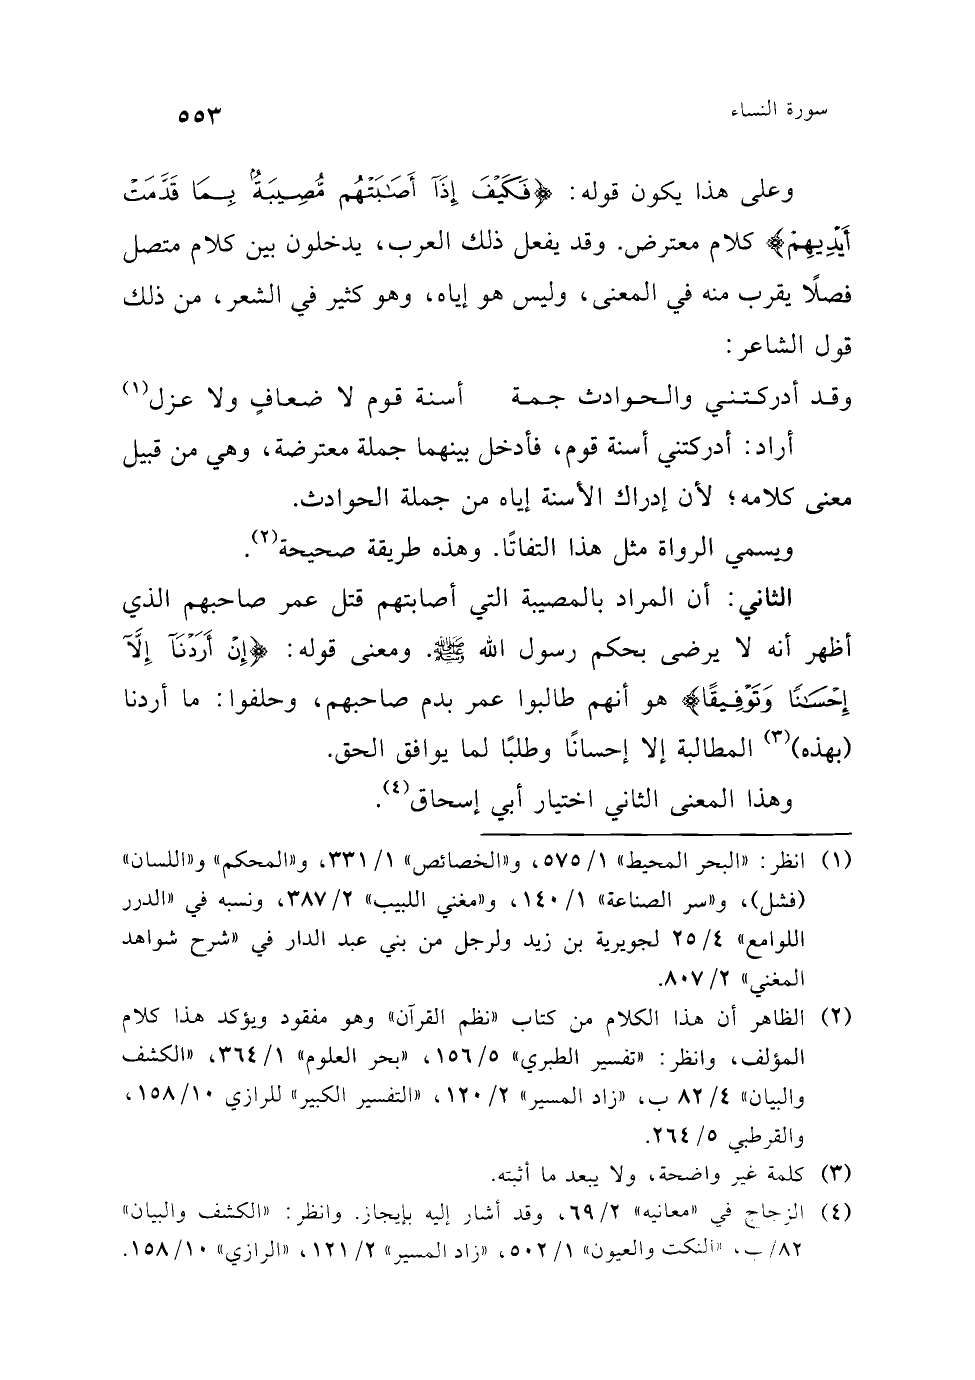 سورة النساء ٥٥٣
وعلى هذا يكون قوله: ﴿فَكَيْفَ إِذَا أَصَابَتْهُم مُّصِيبَةٌ بِمَا قَدَّمَتْ
أَيْدِيهِمْ﴾ كلام معترض. وقد يفعل ذلك العرب، يدخلون بين كلام متصل
فصلًا يقرب منه في المعنى، وليس هو إياه، وهو كثير في الشعر، من ذلك
قول الشاعر:
وقد أدركتني والحوادث جمة أسنة قوم لا ضعافٍ ولا عزل(١)
أراد: أدركتني أسنة قوم، فأدخل بينهما جملة معترضة، وهي من قبيل
معنى كلامه؛ لأن إدراك الأسنة إياه من جملة الحوادث.
ويسمي الرواة مثل هذا التفاتًا. وهذه طريقة صحيحة(٢).
الثاني: أن المراد بالمصيبة التي أصابتهم قتل عمر صاحبهم الذي
أظهر أنه لا يرضى بحكم رسول الله ﷺ. ومعنى قوله: ﴿إِنْ أَرَدْنَآ إِلَّآ
إِحْسَانًا وَتَوْفِيقًا﴾ هو أنهم طالبوا عمر بدم صاحبهم، وحلفوا: ما أردنا
(بهذه)(٣) المطالبة إلا إحسانًا وطلبًا لما يوافق الحق.
وهذا المعنى الثاني اختيار أبي إسحاق(٤).
(١) انظر: «البحر المحيط» ١/ ٥٧٥، و«الخصائص» ١/ ٣٣١، و«المحكم» و«اللسان»
(فشل)، و«سر الصناعة» ١/ ١٤٠، و«مغني اللبيب» ٢/ ٣٨٧، ونسبه في «الدرر
اللوامع» ٤/ ٢٥ لجويرية بن زيد ولرجل من بني عبد الدار في «شرح شواهد
المغني» ٢/ ٨٠٧.
(٢) الظاهر أن هذا الكلام من كتاب «نظم القرآن» وهو مفقود ويؤكد هذا كلام
المؤلف، وانظر: «تفسير الطبري» ٥/ ١٥٦، «بحر العلوم» ١/ ٣٦٤، «الكشف
والبيان» ٤/ ٨٢ ب، «زاد المسير» ٢/ ١٢٠، «التفسير الكبير» للرازي ١٠/ ١٥٨،
والقرطبي ٥/ ٢٦٤.
(٣) كلمة غير واضحة، ولا يبعد ما أثبته.
(٤) الزجاج في «معانيه» ٢/ ٦٩، وقد أشار إليه بإيجاز. وانظر: «الكشف والبيان»
٨٢/ ب، «النكت والعيون» ١/ ٥٠٢، «زاد المسير» ٢/ ١٢١، «الرازي» ١٠/ ١٥٨.